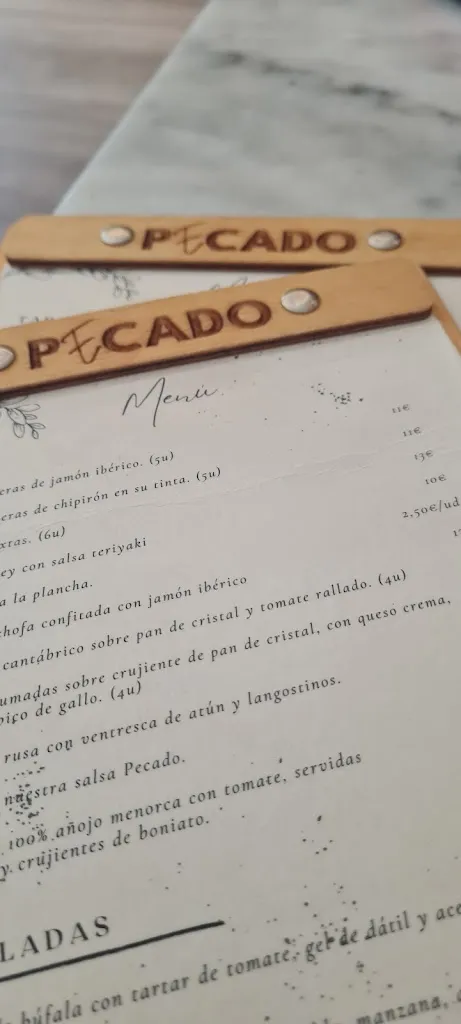 PECADO
PECADO
Menú
eras de jamón ibérico. (5u) 11€
eras de chipirón en su tinta. (5u) 11€
xtas. (6u) 13€
ey con salsa teriyaki 10€
a la plancha. 2,50€/ud
hofa confitada con jamón ibérico
cantábrico sobre pan de cristal y tomate rallado. (4u)
umadas sobre crujiente de pan de cristal, con queso crema,
pico de gallo. (4u)
rusa con ventresca de atún y langostinos.
nuestra salsa Pecado.
100% añojo menorca con tomate, servidas
y crujientes de boniato.
LADAS
búfala con tartar de tomate, gel de dátil y ace
manzana,